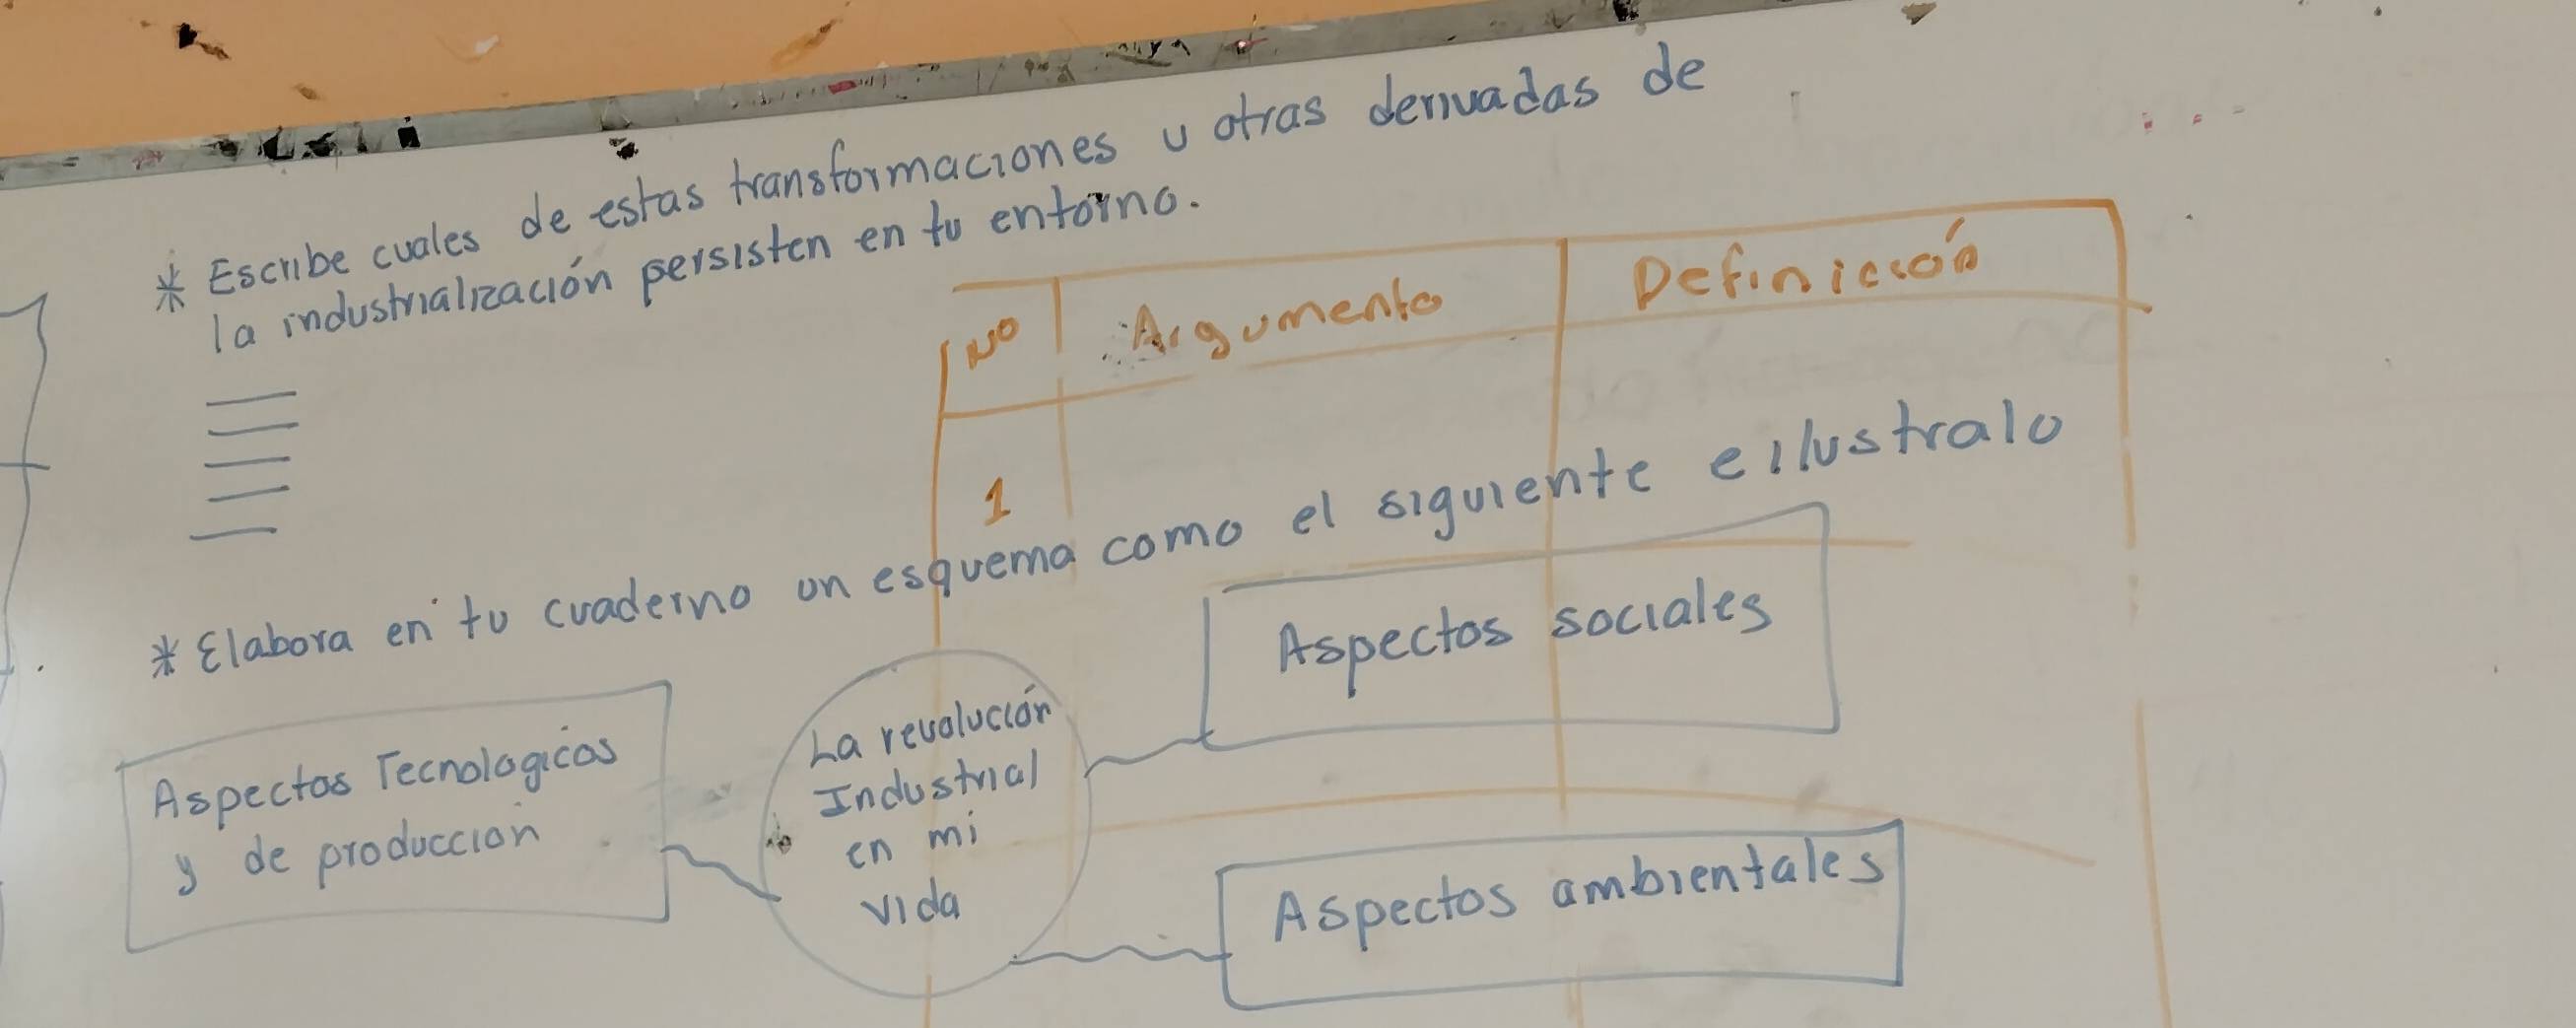 * Escribe cuales de estas transformaciones u otras derivadas de
la industrialización persisten en tu entorno.
Nº Argumento Definición
1
* Elabora en tu cuaderno un esquema como el siguiente e ilustralo
Aspectos sociales
Aspectos Tecnologicos
y de produccion
La revolución
Industrial
en mi
vida
Aspectos ambientales